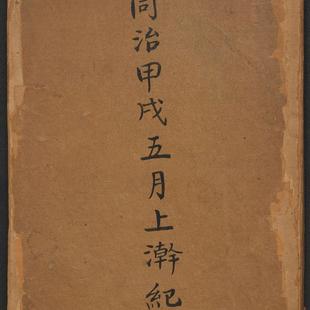 同治甲戌五月上澣紀